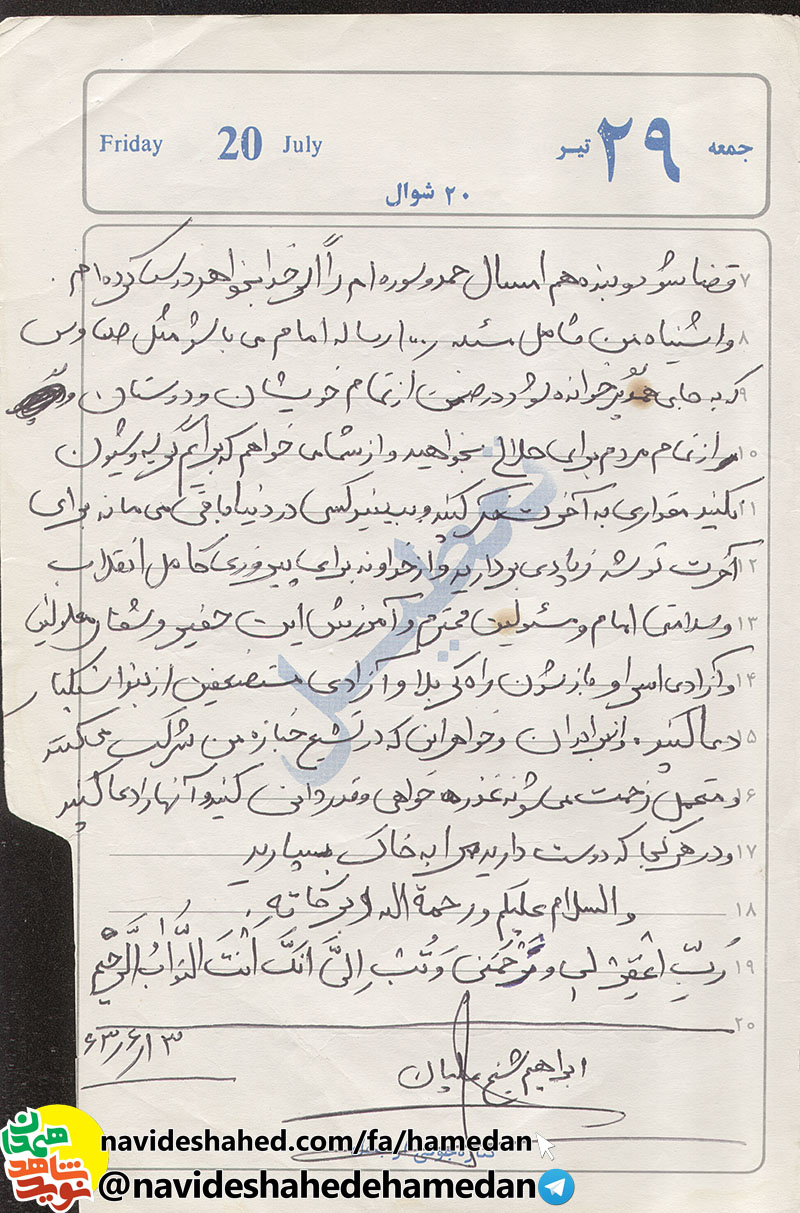 جمعه ۲۹ تیر
Friday 20 July
۲۰ شوال
۷ قضا شود و بنده هم امسال حمد و سوره ام را اگر خدا بخواهد درست کرده ام.
۸ و اشتباه من شامل مسئله ۱۰۰۰ رساله امام می باشد مثل
۹ که به جای خوانده شود در ضمن از تمام خویشان و دوستان و
۱۰ از تمام مردم برای حلالی بخواهید و از شما می خواهم که برایم گریه و شیون
۱۱ نکنید مقداری به آخرت فکر کنید و ببینید کسی در دنیا باقی می ماند برای
۱۲ آخرت توشه زیادی بردارید و از خداوند برای پیروزی کامل انقلاب
۱۳ و سلامتی امام و مسئولین محترم و آمرزش این حقیر و شفای معلولین
۱۴ و آزادی اسرا و باز شدن راه کربلا و آزادی مستضعفین از
۱۵ دعا کنید. و از برادران و خواهرانی که در تشییع جنازه من شرکت می کنند
۱۶ و متحمل زحمت می شوند عذر خواهی و قدردانی کنید و آنها را دعا کنید
۱۷ و در هر کجا که دوست دارید مرا به خاک بسپارید
۱۸ والسلام علیکم و رحمة الله و برکاته
۱۹ رَبِّ اغْفِرْ لی وَ تُبْ اِلَیَّ اِنَّکَ اَنْتَ التَّوّابُ الرَّحیم
۲۰
۶۳/۶/۱۳
ابراهیم شیخ علیان
تعطیل
نوید شاهد همدان
navideshahed.com/fa/hamedan
@navideshahedehamedan